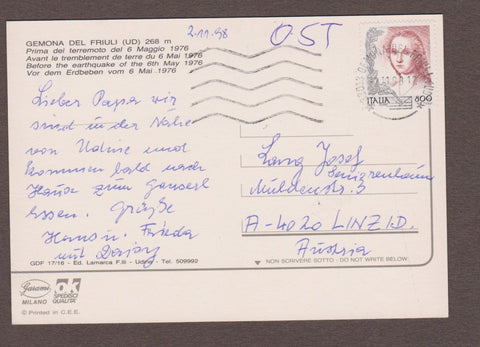 GEMONA DEL FRIULI (UD) 268 m
Prima del terremoto del 6 Maggio 1976
Avant le tremblement de terre du 6 Mai 1976
Before the earthquake of the 6th May 1976
Vor dem Erdbeben vom 6 Mai 1976
2.11.98
OST
ITALIA 800
Lieber Papa wir
sind in der Nähe
von Udine und
kommen bald nach
Hause zum Ganserl
Essen. Grüße
Hans u. Frieda
und
Lang Josef
Seniorenheim
Muldenstr. 3
A-4020 LINZ/D.
Austria
GDF 17/16 - Ed. Lamarca F.lli - Udine - Tel. 509992
▼ NON SCRIVERE SOTTO - DO NOT WRITE BELOW. ▼
Garami
MILANO
OK
SPEDISCI
QUALITA'
© Printed in C.E.E.